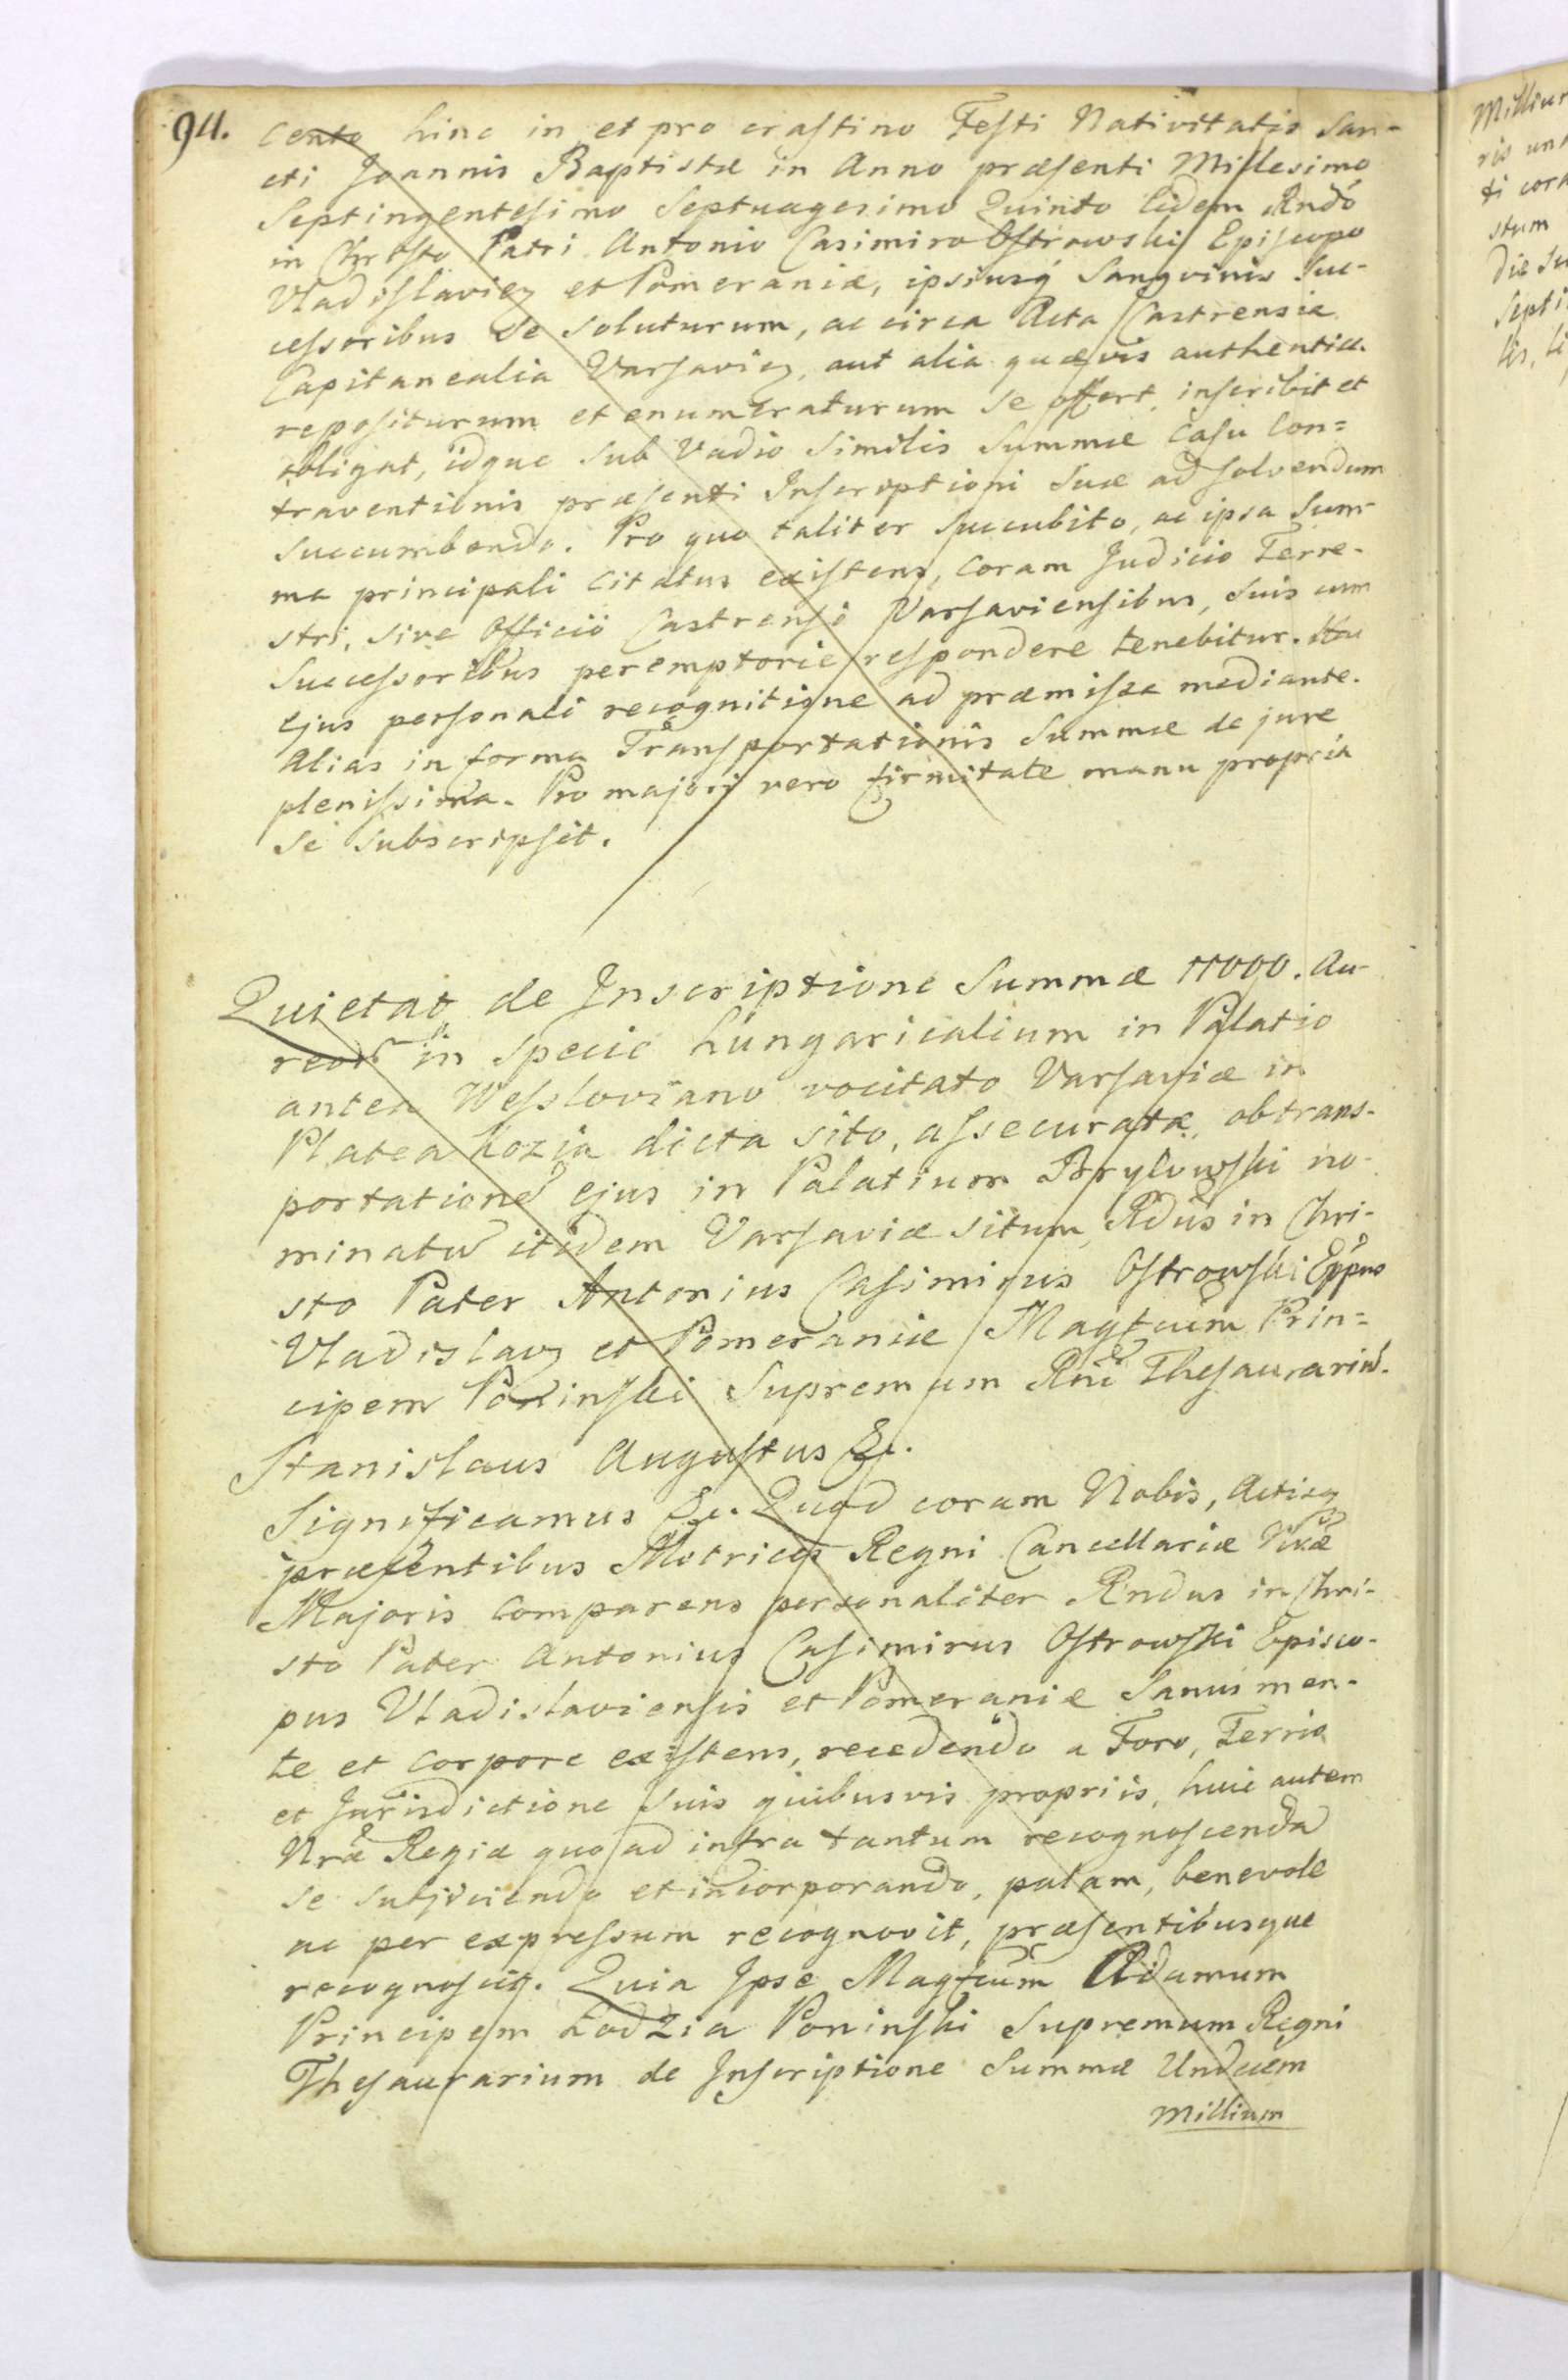 94.
cento hinc in et pro crastino Festi Nativitatis San-
cti Joannis Baptistæ in Anno præsenti Millesimo
Septingentesimo Septuagesimo Quinto eidem Rndo
in Christo Patri Antonio Casimiro Ostrowski Episcopo
Vladislavien et Pomeraniæ, ipsiusq Sangvinis Suc-
cessoribus se soluturum, ac circa Acta Castrensia
Capitanealia Varsavien, aut alia quævis authentica
repositurum et enumeraturum se offert, inscribit et
obligat, idque sub Vadio similis Summæ Casu Con=
traventionis præsenti Inscriptioni suæ ad solvendum
succumbendo. Pro quo taliter succubito, ac ipsa Sum-
ma principali citatus existens, coram Judicio Terre-
stri, sive Officio Castrensi Varsaviensibus, suis cum
Successoribus peremptorie respondere tenebitur. Hac
ejus personali recognitione ad præmissa mediante.
Alias in forma Transportationis Summæ de jure
plenissima. Pro majori vero firmitate manu propria
se subscripsit.
Quietat de Inscriptione Summæ 11000. Au-
reor in specie hungaricalium in Palatio
antea Wessloviano vocitato Varsaviæ in
Platea Kozia dicta sito, assecuratæ, ob trans-
portatione ejus in Palatium Brylowski no-
minatu itidem Varsaviæ situm, Rdus in Chri-
sto Pater Antonius Casimirus Ostrowski Eppus
Vladislav et Pomeraniæ Magfcum Prin=
cipem Poninski Supremum Rni Thesaurariu.
Stanislaus Augustus &c.
Significamus &c. Quod coram Nobis, Actisq
præsentibus Metrices Regni Cancellariæ Nræ
Majoris comparens personaliter Rndus in Chri-
sto Pater Antonius Casimirus Ostrowski Episco-
pus Vladislaviensis et Pomeraniæ sanus men-
te et corpore existens, recedendo a Foro, Terris
et Jurisdictione suis quibusvis propriis, huic autem
Nræ Regiæ quo ad infra tantum recognoscenda
se subjiciendo et incorporando, palam, benevole
ac per expressum recognovit, præsentibusque
recognoscit. Quia Ipse Magfcum Adamum
Principem Łodzia Poninski Supremum Regni
Thesaurarium de Inscriptione Summæ Undecim
Millium